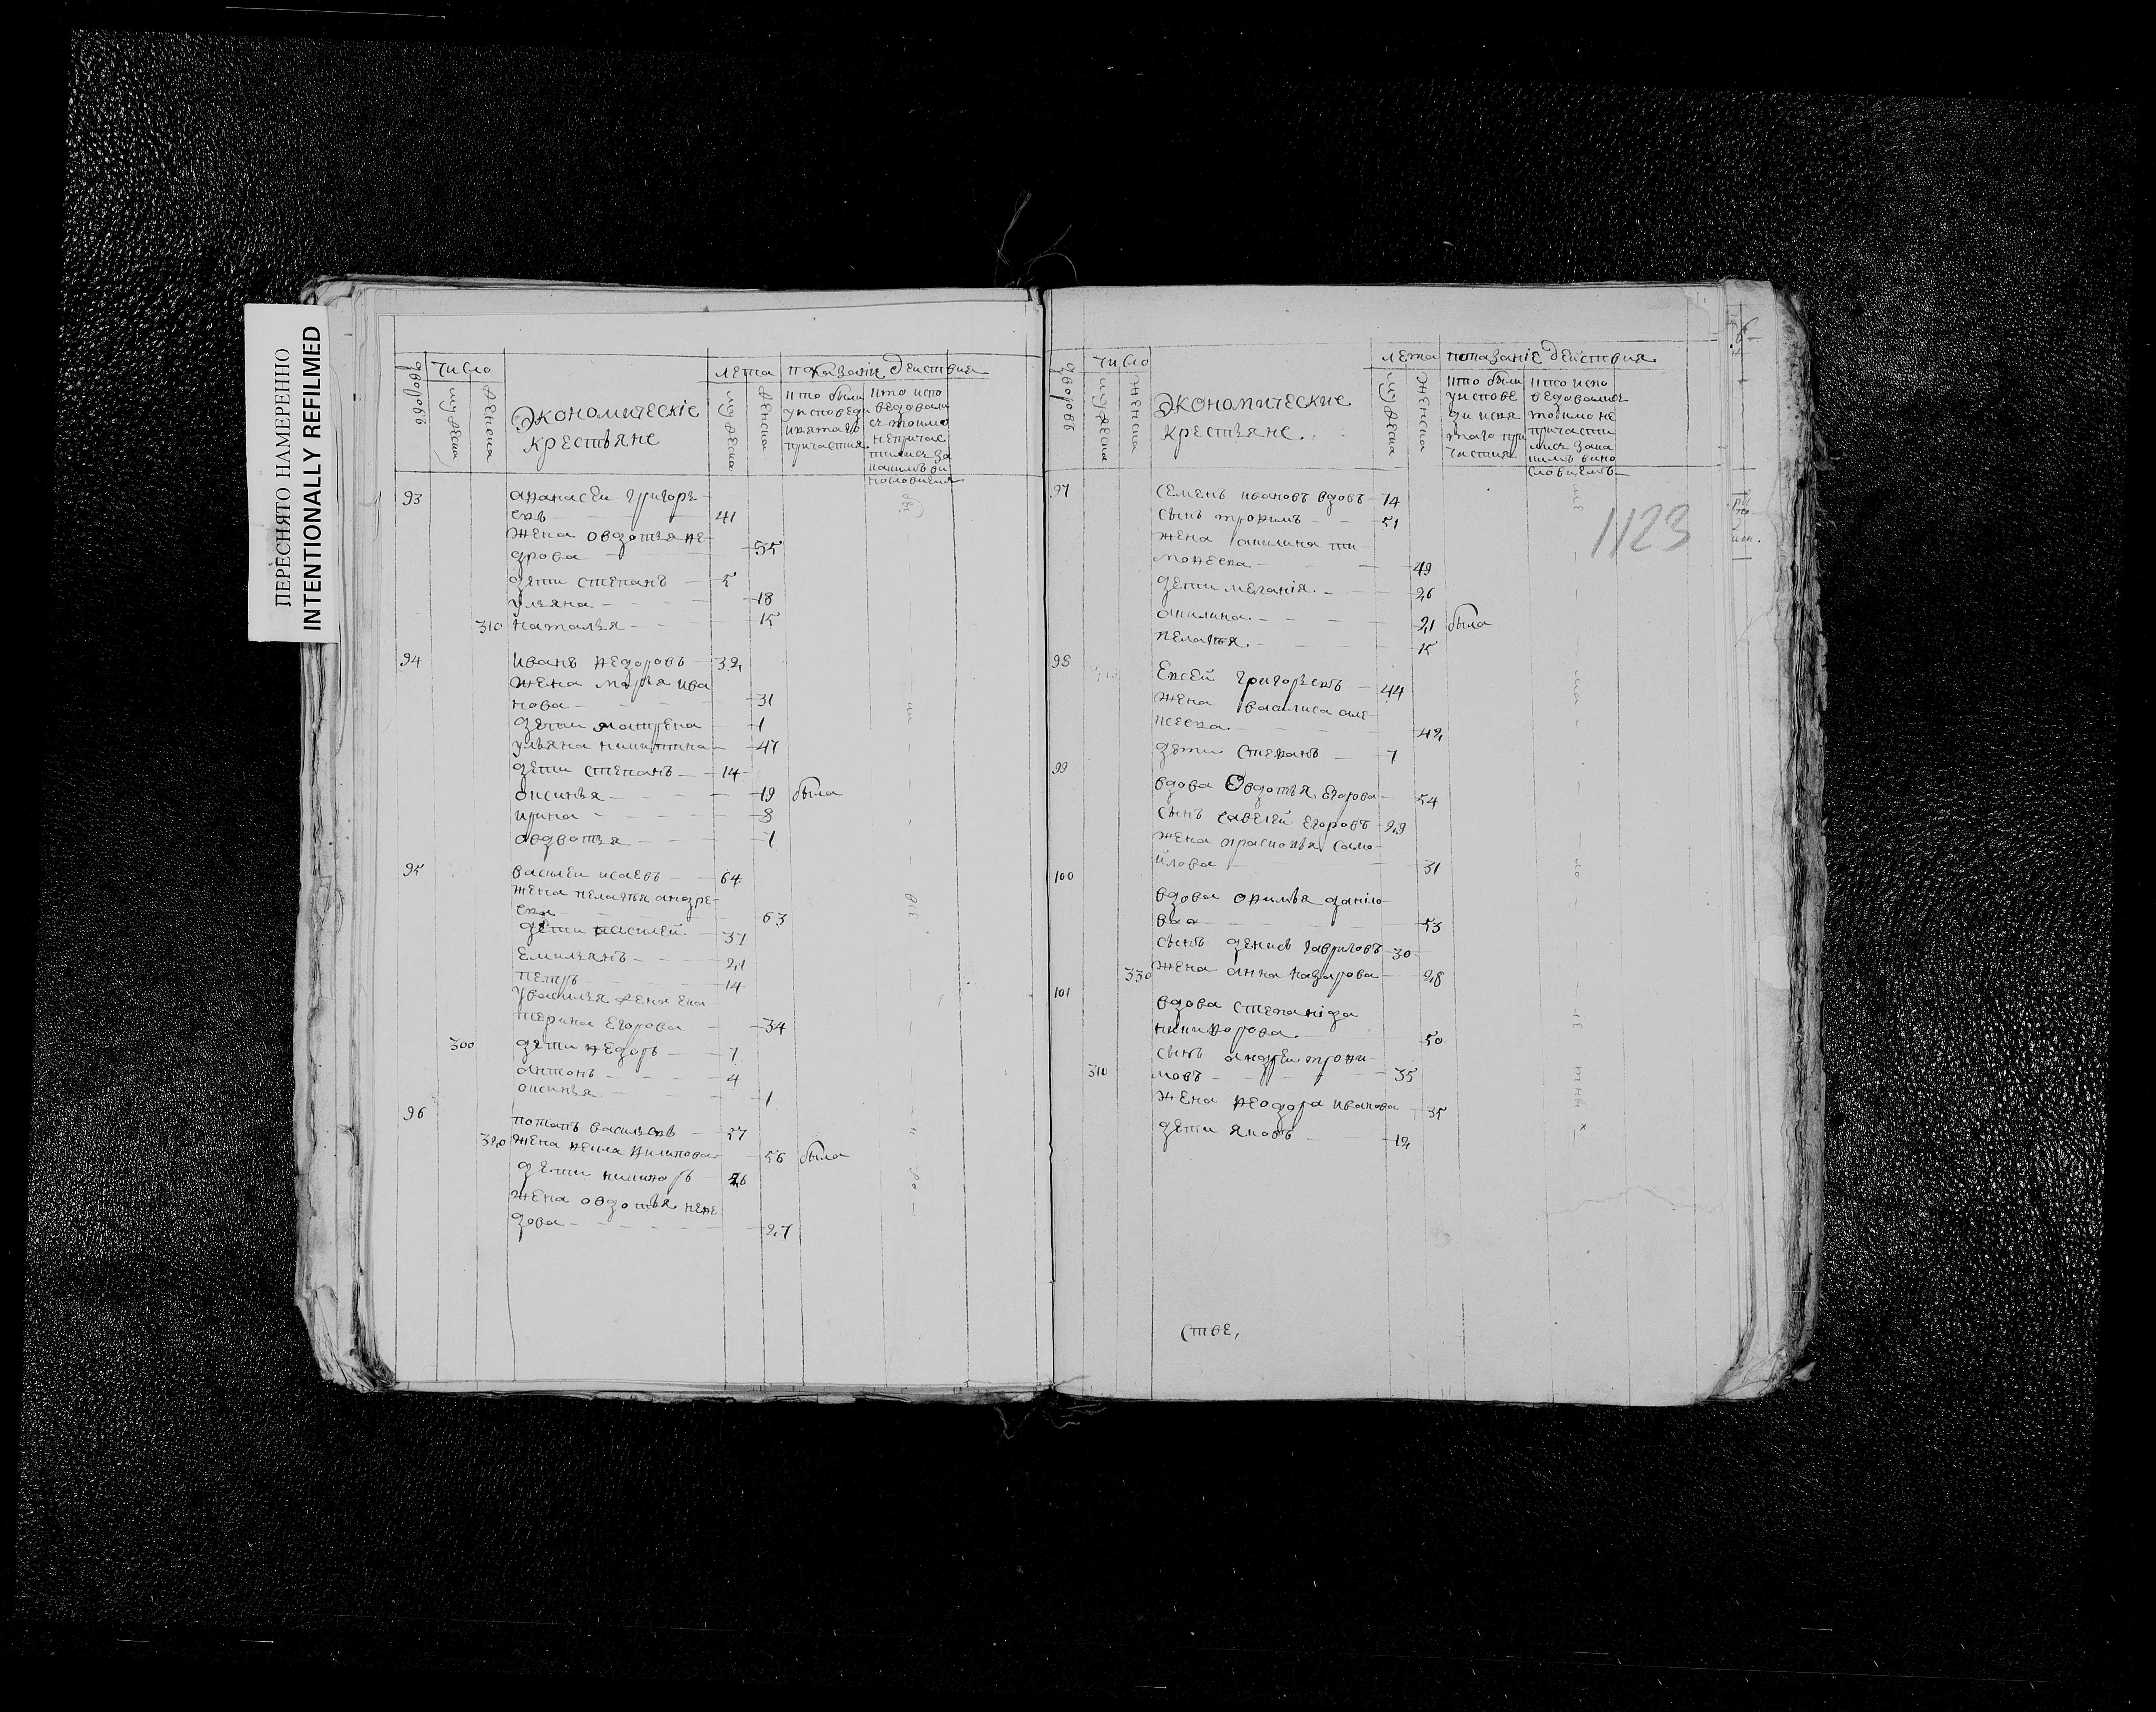 ПЕРЕСНЯТО НАМЕРЕННО
INTENTIONALLY REFILMED
дворовъ
число
мужеска
женска
Экономическіе
крестьяне
лета
мужеска
женска
показаніи действия
кто были
у исповеди
и святаго
причастия
кто испо
ведовали
с токмо
непричас
тились за
каким ви
нословием
93
афанасеи григорь
евъ 41
жена овдотья фе
дрова 55
дети степанъ 5
ульяна 18
310 наталья 15
94
иванъ федоровъ 32
жена марья ива
нова 31
дети матрена 1
ульяна никитина 47
дети степанъ 14
оксинья 19 была
ирина 8
авдотья 1
95
василеи исаевъ 64
жена пелагья андре
ева 63
дети василей 37
емильянъ 21
петръ 14
у василья жена ека
терина егорова 34
300 дети федоръ 7
антонъ 4
оксинья 1
96
потапъ васильевъ 57
320 жена фекла филипова 56 была
дети никифоръ 26
жена овдотья нефе
дова 27
дворовъ
число
мужеска
женска
Экономические
крестьяне.
лета
мужеска
женска
показаніе действия
кто были
у испове
ди и свя
таго при
частия
кто испо
ведовались
токмо не
причасти
лись за ка
кимъ вино
словиемъ
1123
97
семенъ ивановъ вдовъ 74
сынъ трофимъ 51
жена акилина ти
мофеева 49
дети меланія 26
акилина 21 была
пелагья 15
98
евсей григорьевъ 44
жена василиса але
ксеева 42
дети степанъ 7
99
вдова Овдотья егорова 54
сынъ савелей егоровъ 29
жена прасковья само
илова 31
100
вдова офимья даніло
вна 53
сынъ денисъ гавриловъ 30
330 жена анна назарова 28
101
вдова степанида
никифорова 50
сынъ андреи трофи
310 мовъ 35
жена феодора иванова 35
дети яковъ 12
стве,